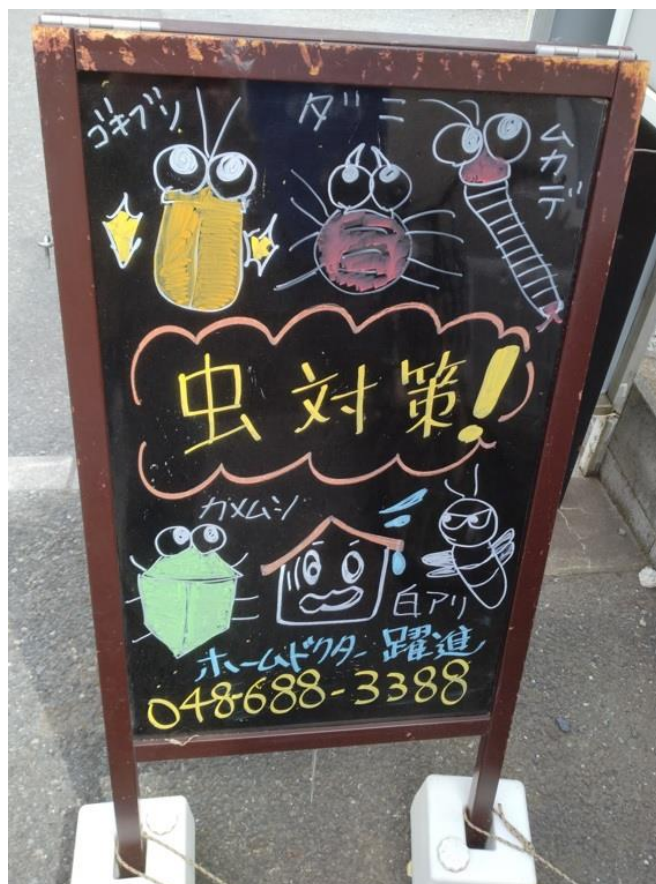 ゴキブリ
ダニ
ムカデ
虫対策!
カメムシ
白アリ
ホームドクター 躍進
048-688-3388